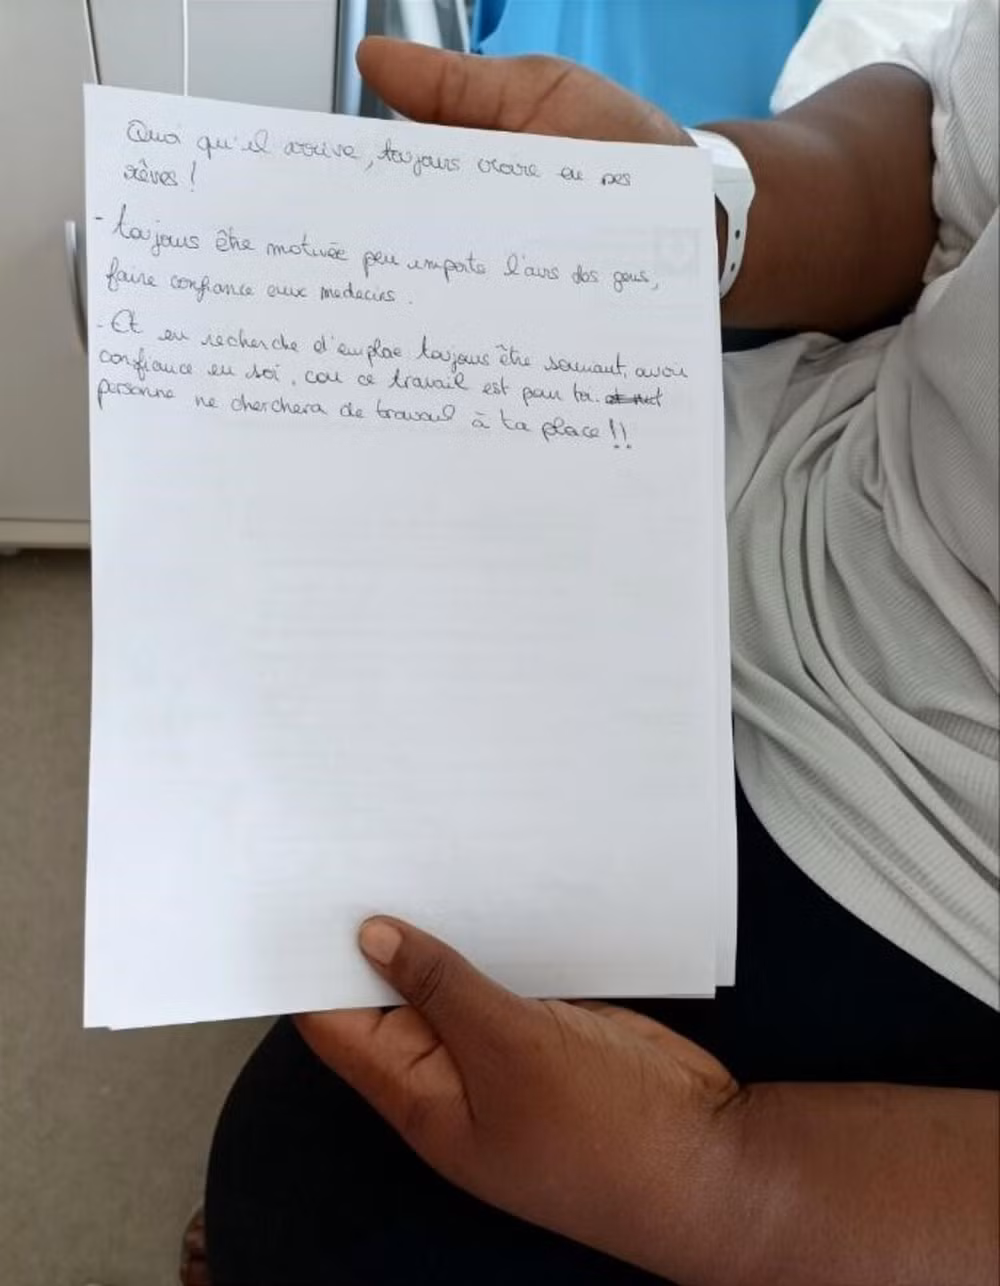 Quoi qu'il arrive, toujours croire en ses
rêves !
- toujours être motivée peu importe l'avis des gens,
faire confiance aux medecins .
- Et en recherche d'emploie toujours être souriant, avoir
confiance en soi, car ce travail est pour toi.
personne ne cherchera de travail à ta place !!